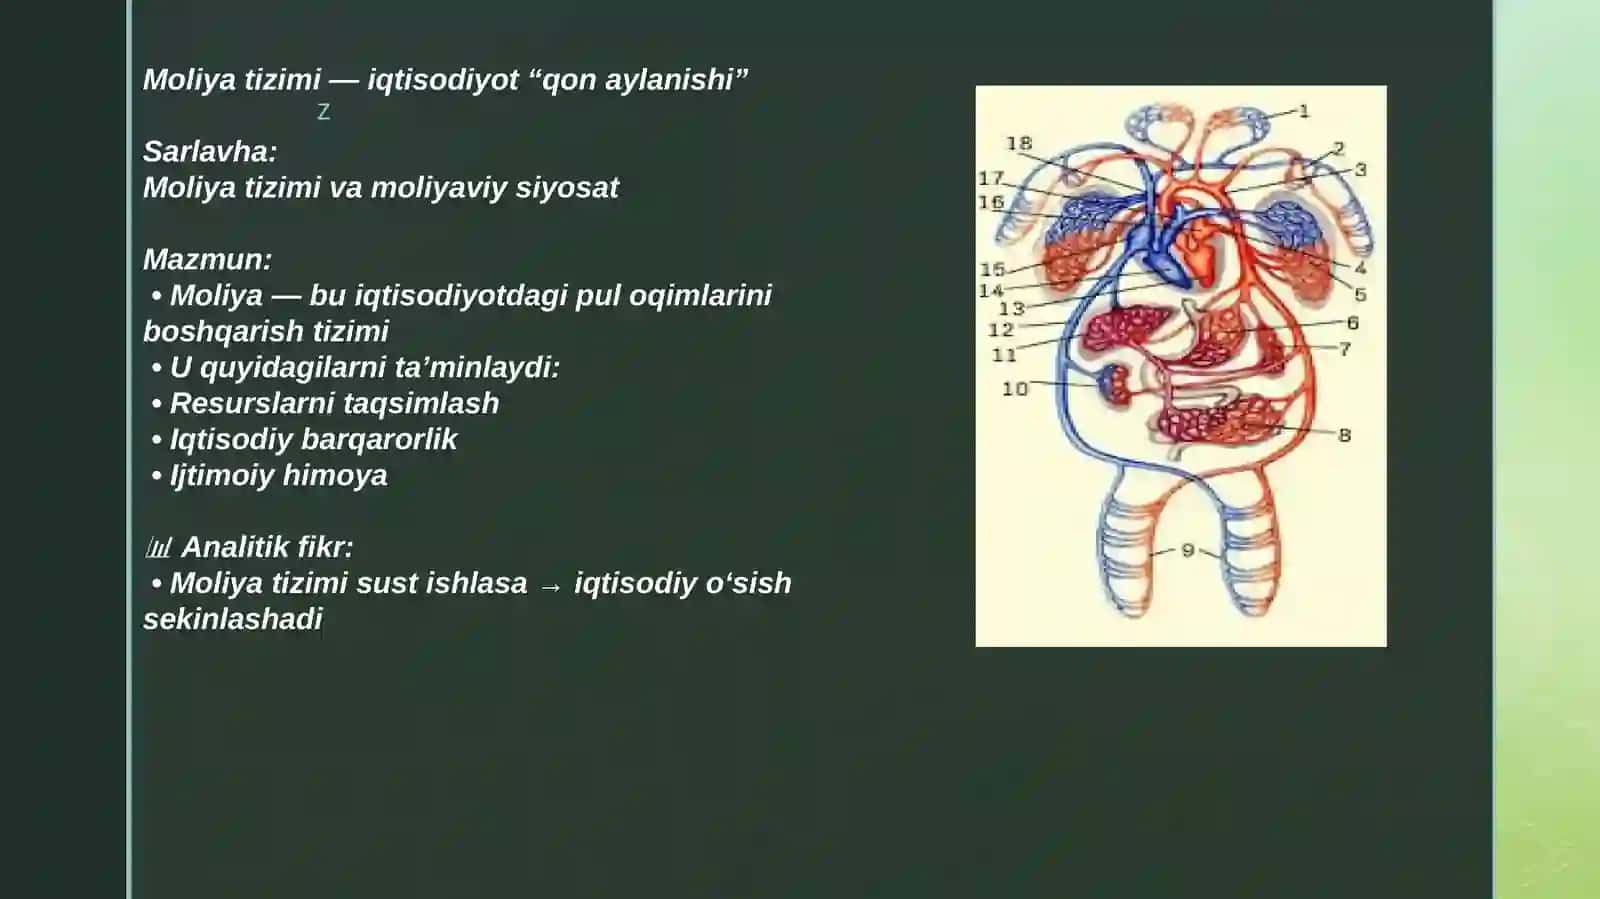 Moliya tizimi — iqtisodiyot “qon aylanishi”
z
Sarlavha:
Moliya tizimi va moliyaviy siyosat
Mazmun:
• Moliya — bu iqtisodiyotdagi pul oqimlarini
boshqarish tizimi
• U quyidagilarni ta’minlaydi:
• Resurslarni taqsimlash
• Iqtisodiy barqarorlik
• Ijtimoiy himoya
📊 Analitik fikr:
• Moliya tizimi sust ishlasa → iqtisodiy o‘sish
sekinlashadi
1
2
3
4
5
6
7
8
9
10
11
12
13
14
15
16
17
18